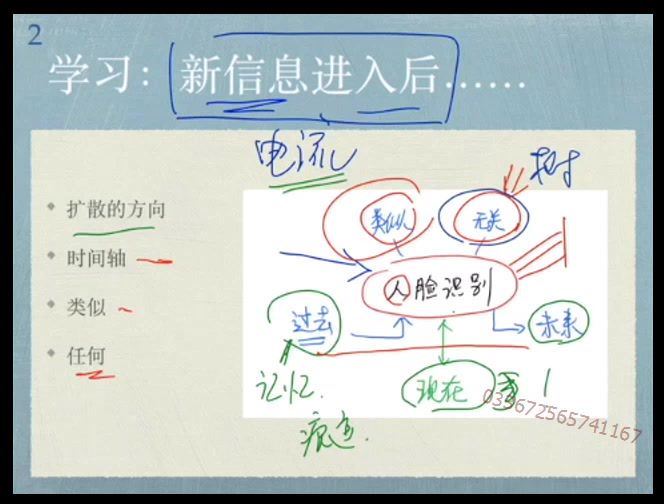 2
学习：新信息进入后……
电流
扩散的方向
时间轴
类似
任何
类似
无关
人脸识别
过去
未来
现在
记忆
痕迹